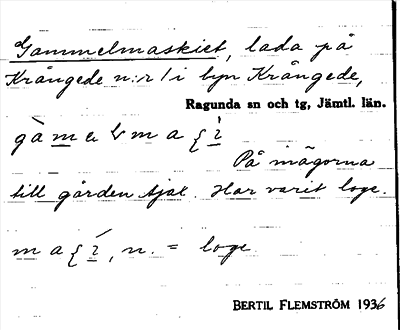 Gammelmaskiet, lada på
Krångede n:r 1 i byn Krångede,
Ragunda sn och tg, Jämtl. län.
På inägorna
till gården själ. Har varit loge.
n. = loge
BERTIL FLEMSTRÖM 1936